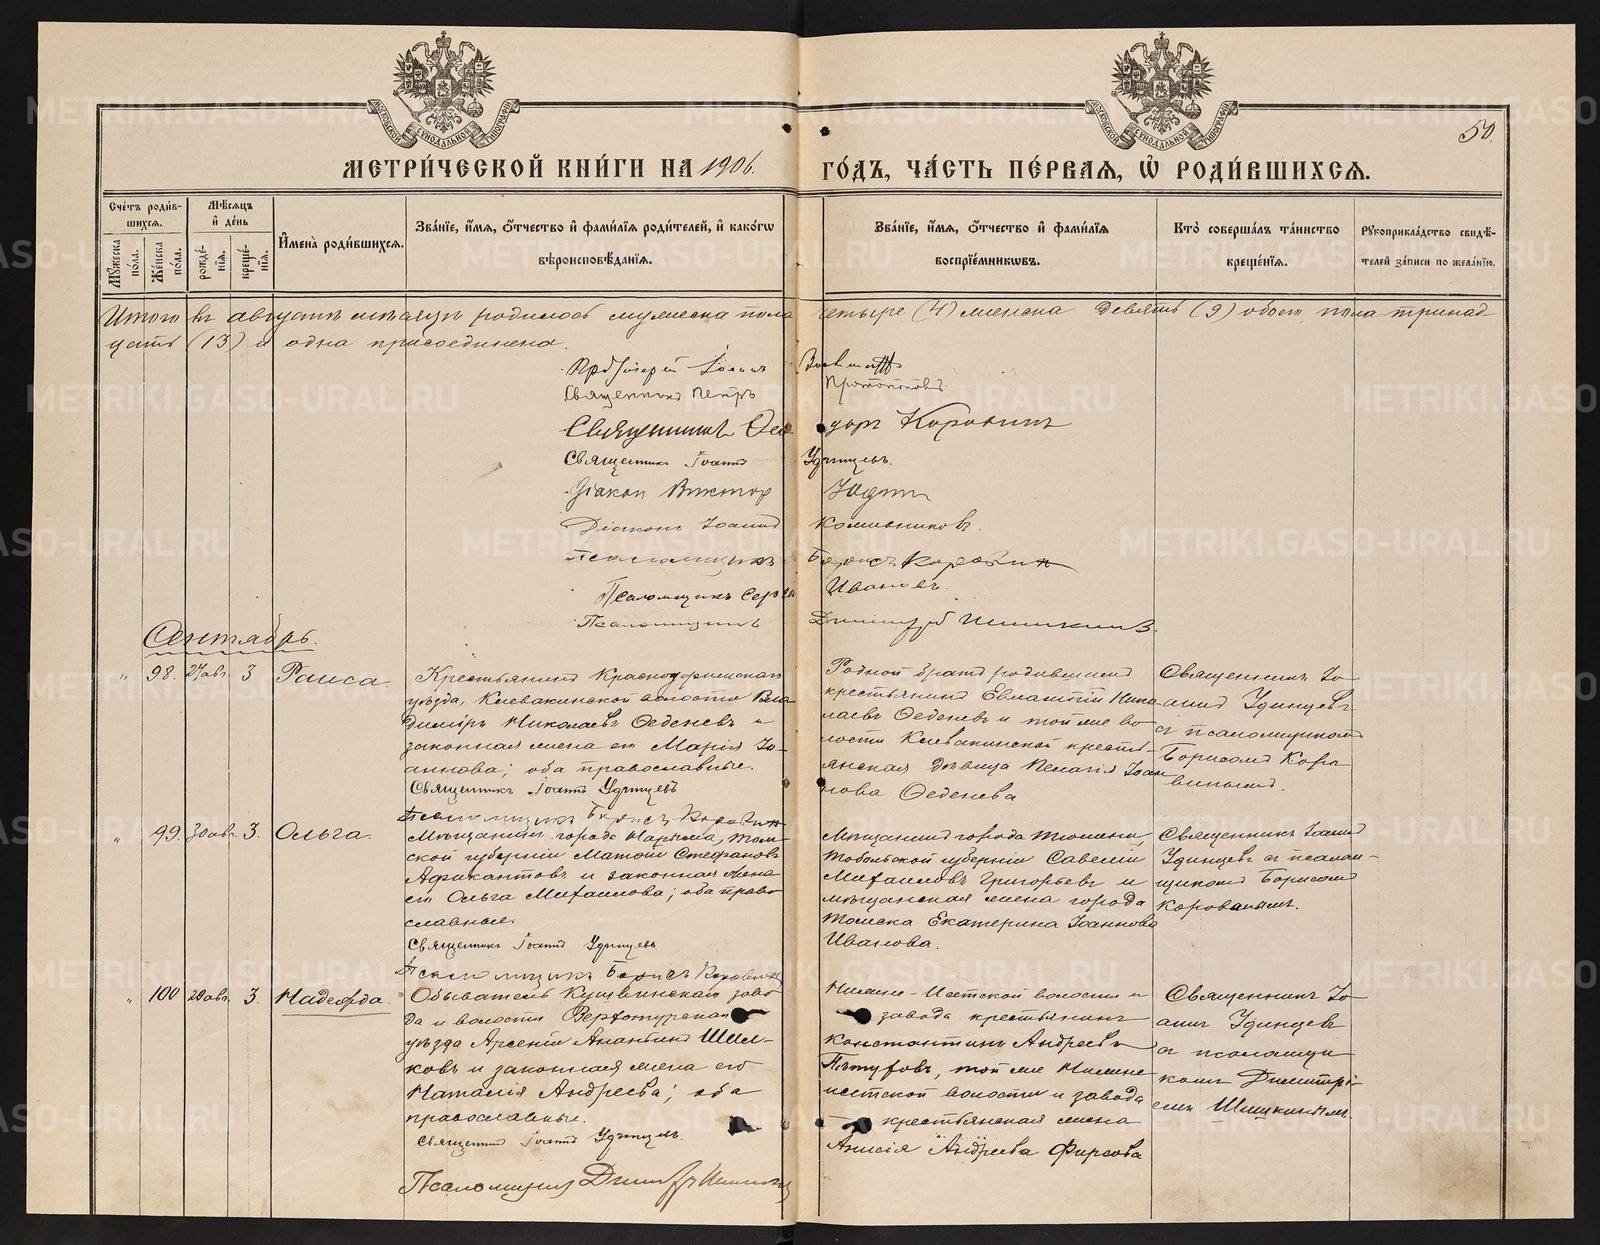 МОСКОВСКОЙ СѴНОДАЛЬНОЙ ТИПОГРАФІИ
МОСКОВСКОЙ СѴНОДАЛЬНОЙ ТИПОГРАФІИ
50.
МЕТРИ́ЧЕСКОЙ КНИ́ГИ НА 1906. ГО́ДЪ, ЧА́СТЬ ПЕ́РВАѦ, Ѡ҆ РОДИ́ВШИХСѦ.
Сче́тъ роди́в-
шихсѧ.
Мꙋ́жеска по́ла.
Же́нска по́ла.
Мѣ́сѧцъ
и҆ де́нь
рожде́-
нїѧ.
креще́-
нїѧ.
И҆мена̀ роди́вшихсѧ.
Зва́нїе, и҆́мѧ, ѻ҆́тчество и҆ фами́лїѧ роди́телей, и҆ како́гѡ
вѣроисповѣ́данїѧ.
Зва́нїе, и҆́мѧ, ѻ҆́тчество и҆ фами́лїѧ
воспрїе́мникѡвъ.
Кто̀ соверша́лъ та́инство
креще́нїѧ.
Рꙋкоприкла́дство свидѣ́-
телей за́писи по жела́нїю.
Итого въ августѣ мѣсяцѣ родилось мужеска пола четыре (4) женска девять (9) обоего пола тринад
цать (13) и одна присоединена.
Протоіерей Іоаннъ
Священникъ Петръ Протопоповъ
Священникъ Ѳеодоръ Коровинъ
Священникъ Іоаннъ Удинцевъ.
Діаконъ Викторъ Юдинъ
Діаконъ Іоаннъ
Псаломщикъ Борисъ Коровинъ
Псаломщикъ Сергѣй Ивановъ
Псаломщикъ Димитрій Шишкинъ.
Сентябрь.
" 98. 27 авг. 3 Раиса.
Крестьянинъ Красноуфимскаго
уѣзда, Клевакинской волости Вла
димиръ Николаевъ Ѳеденевъ и
законная жена его Марія Іо-
аннова; оба православные.
Священникъ Іоаннъ Удинцевъ
Псаломщикъ Борисъ Коровинъ
Родной братъ родившей
крестьянинъ Евлампій Нико
лаевъ Ѳеденевъ и той же во
лости Клевакинской кресть-
янская дѣвица Пелагія Іоан
нова Ѳеденева
Священникъ Іо-
аннъ Удинцевъ
съ псаломщикомъ
Борисомъ Коро
винымъ.
" 99. 30 авг. 3. Ольга.
Мѣщанинъ города Нарыма, Том-
ской губерніи Матѳій Стефановъ
и законная жена
его Ольга Михаилова; оба право
славные.
Священникъ Іоаннъ Удинцевъ
Псаломщикъ Борисъ Коровинъ
Мѣщанинъ города Тюмени,
Тобольской губерніи Савелій
Михаиловъ Григорьевъ и
мѣщанская жена города
Томска Екатерина Іоаннова
Иванова.
Священникъ Іоаннъ
Удинцевъ съ псалом-
щикомъ Борисомъ
Коровинымъ.
" 100 28 авг. 3. Надежда.
Обыватель Кушвинскаго заво
да и волости Верхотурскаго
уѣзда Арсеній Ананьинъ Шил-
ковъ и законная жена его
Наталія Андреева; оба
православные.
Священникъ Іоаннъ Удинцевъ.
Псаломщикъ Димитрій Шишкинъ
Нижне-Исетской волости и
завода крестьянинъ
Константинъ Андреевъ
Пѣтуховъ, той же Нижне
исетской волости и завода
крестьянская жена
Анисія Андреева Фирсова
Священникъ Іо
аннъ Удинцевъ
съ псаломщи
комъ Димитрі-
емъ Шишкинымъ.
METRIKI.GASO-URAL.RU